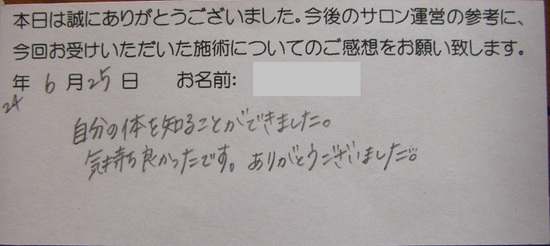 本日は誠にありがとうございました。今後のサロン運営の参考に、
今回お受けいただいた施術についてのご感想をお願い致します。
24年 6月25日 お名前:
自分の体を知ることができました。
気持ち良かったです。ありがとうございました。